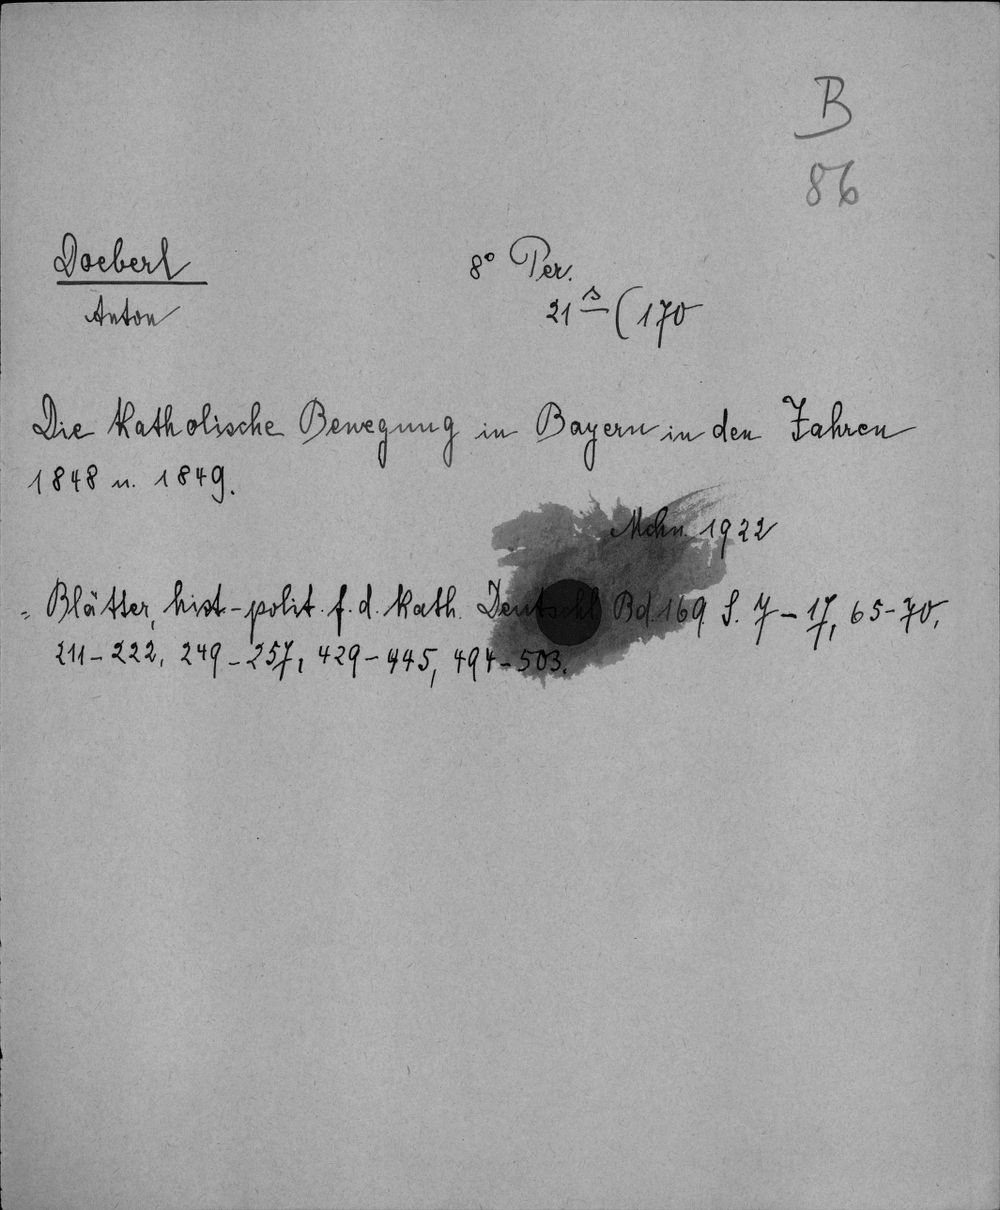 B
86
Doeberl
Anton
8° Per.
21 s (170
Die Katholische Bewegung in Bayern in den Jahren
1848 u. 1849.
Mchn. 1922
= Blätter, hist-polit. f. d. Kath. Deutschl. Bd. 169 S. 7-17, 65-70,
211-222, 249-257, 429-445, 494-503.